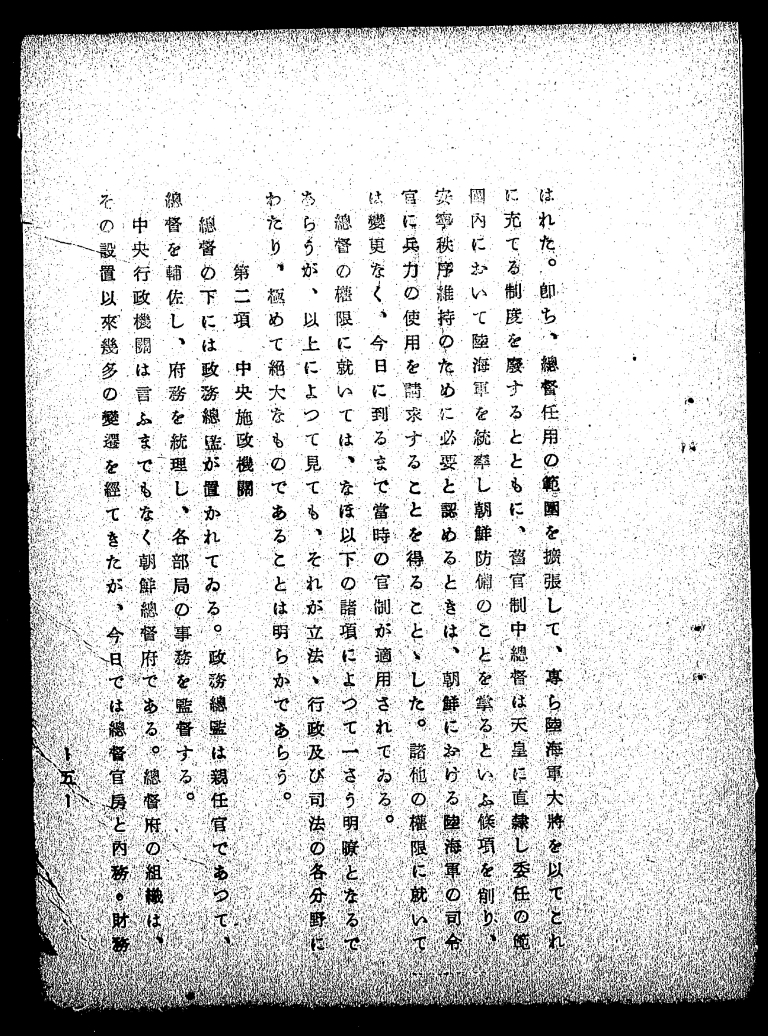 はれた。卽ち、總督任用の範圍を擴張して、專ら陸海軍大將を以てこれ
に充てる制度を廢するとともに、舊官制中總督は天皇に直隸し委任の範
圍內において陸海軍を統率し朝鮮防備のことを掌るといふ條項を削り、
安寧秩序維持のために必要と認めるときは、朝鮮における陸海軍の司令
官に兵力の使用を請求することを得ることゝした。諸他の權限に就いて
は變更なく、今日に到るまで當時の官制が適用されてゐる。
總督の權限に就いては、なほ以下の諸項によつて一さう明瞭となるで
あらうが、以上によつて見ても、それが立法、行政及び司法の各分野に
わたり、極めて絕大なものであることは明らかであらう。
第二項 中央施政機關
總督の下には政務總監が置かれてゐる。政務總監は親任官であつて、
總督を輔佐し、府務を統理し、各部局の事務を監督する。
中央行政機關は言ふまでもなく朝鮮總督府である。總督府の組織は、
その設置以來幾多の變遷を經てきたが、今日では總督官房と內務・財務
―五―